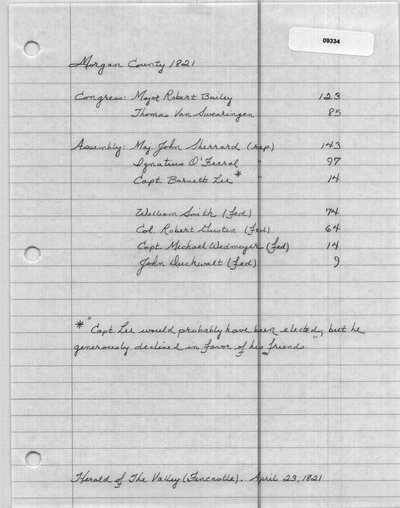 09334
Morgan County 1821
Congress: Major Robert Bailey 123
Thomas Van Swearingen 85
Assembly: Maj. John Sherrard (rep) 143
Ignatius O'Ferral " 97
Capt. Barnett Lee* " 14
William Smith (fed) 74
Col. Robert Gusten (fed) 64
Capt. Michael Wedmeyer (fed) 14
John Duckwalt (fed) 9
* "Capt. Lee would probably have been elected, but he
generously declined in favor of his friends."
Herald of The Valley (Fincastle). April 23, 1821